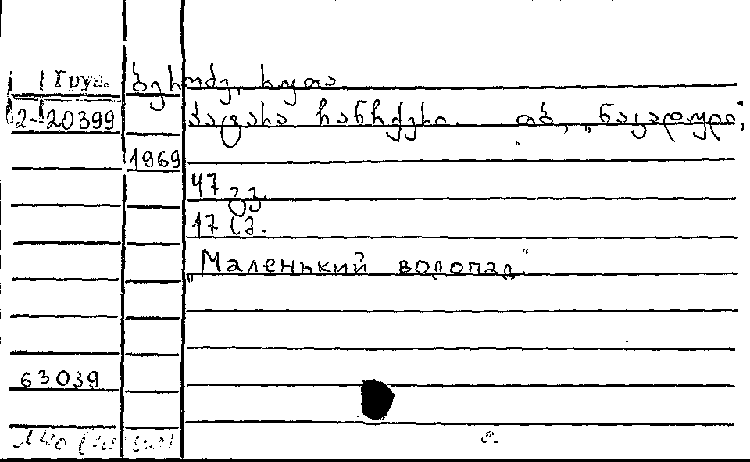 Груз.
ბერიძე, ხუტა
2-20399 პატარა ჩანჩქერი. თბ., „ნაკადული“,
1969
47 გვ.
17 სმ.
„Маленький водопад“
63039